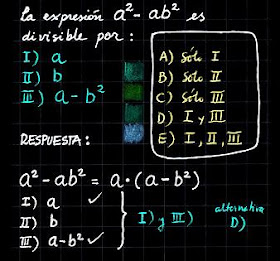 la expresión a² - ab² es
divisible por :
I) a
II) b
III) a - b²
A) Sólo I
B) Sólo II
C) Sólo III
D) I y III
E) I, II, III
RESPUESTA:
a² - ab² = a · (a - b²)
I) a ✓
II) b
III) a - b² ✓
I) y III)
alternativa
D)